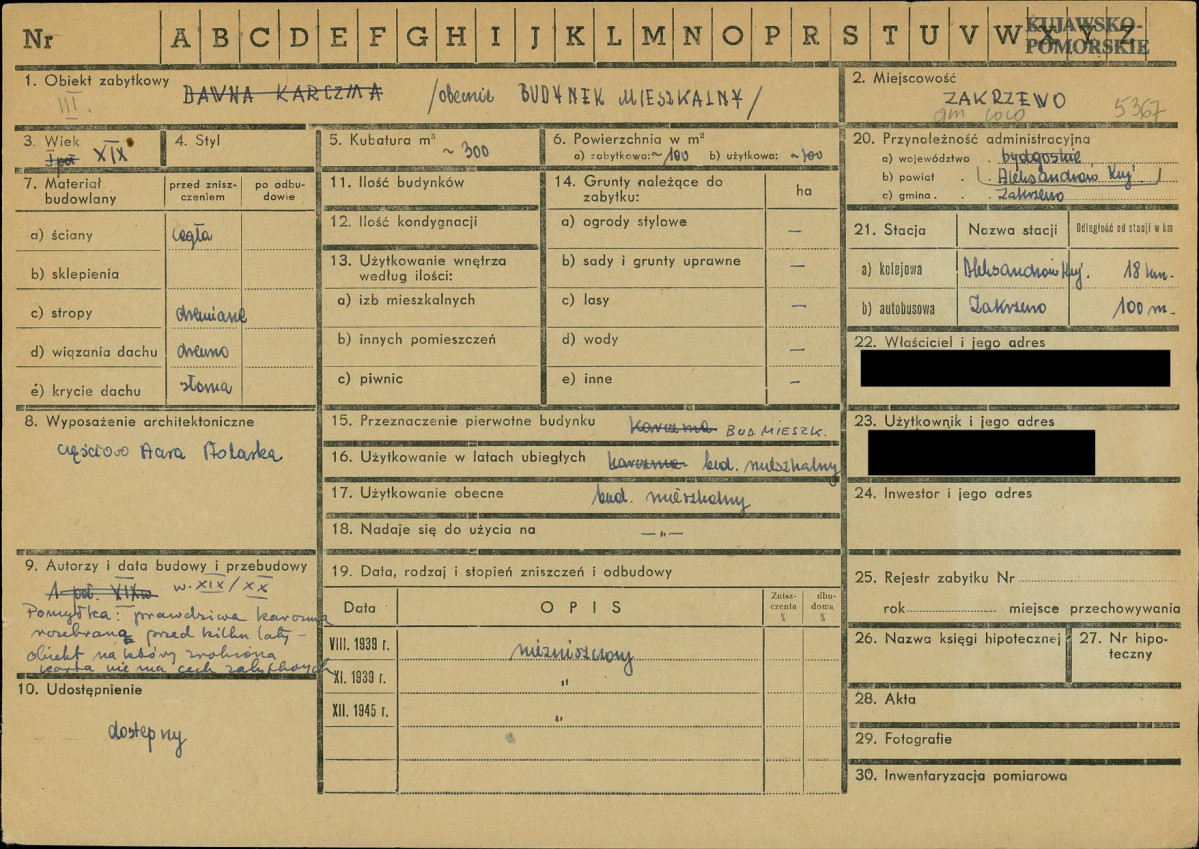 Nr A B C D E F G H I J K L M N O P R S T U V W X Y Z
KUJAWSKO-
POMORSKIE
1. Obiekt zabytkowy
III.
DAWNA KARCZMA /obecnie BUDYNEK MIESZKALNY/
2. Miejscowość
ZAKRZEWO
gm loco
5367
3. Wiek
I poł XIX
4. Styl
5. Kubatura m³
~ 300
6. Powierzchnia w m²
a) zabytkowa: ~ 100 b) użytkowa: ~100
7. Materiał budowlany
przed zniszczeniem
po odbudowie
a) ściany cegła
b) sklepienia
c) stropy drewniane
d) wiązania dachu drewno
e) krycie dachu słoma
8. Wyposażenie architektoniczne
częściowo stara stolarka
9. Autorzy i data budowy i przebudowy
1 poł. XIX w w. XIX / XX
Pomyłka: prawdziwa karczma
rozebrana przed kilku laty –
obiekt na który zrobiona
karta nie ma cech zabytkowych
10. Udostępnienie
dostępny
11. Ilość budynków
12. Ilość kondygnacji
13. Użytkowanie wnętrza
według ilości:
a) izb mieszkalnych
b) innych pomieszczeń
c) piwnic
14. Grunty należące do
zabytku:
ha
a) ogrody stylowe –
b) sady i grunty uprawne –
c) lasy –
d) wody –
e) inne –
15. Przeznaczenie pierwotne budynku karczma BUD. MIESZK.
16. Użytkowanie w latach ubiegłych karczma bud. mieszkalny
17. Użytkowanie obecne bud. mieszkalny
18. Nadaje się do użycia na –"–
19. Data, rodzaj i stopień zniszczeń i odbudowy
Data
OPIS
Zniszczenia %
dbudowa %
VIII. 1939 r. niezniszczony
XI. 1939 r. "
XII. 1945 r. "
20. Przynależność administracyjna
a) województwo bydgoskie
b) powiat (Aleksandrów Kuj.)
c) gmina Zakrzewo
21. Stacja
Nazwa stacji
Odległość od stacji w km
a) kolejowa Aleksandrów Kuj. 18 km.
b) autobusowa Zakrzewo 100 m.
22. Właściciel i jego adres
23. Użytkownik i jego adres
24. Inwestor i jego adres
25. Rejestr zabytku Nr
rok miejsce przechowywania
26. Nazwa księgi hipotecznej
27. Nr hipoteczny
28. Akta
29. Fotografie
30. Inwentaryzacja pomiarowa